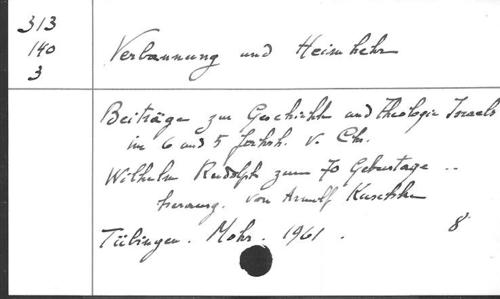 313
140
3
Verbannung und Heimkehr
Beiträge zur Geschichte und Theologie Israels
im 6 und 5 Jahrh. v. Chr.
Wilhelm Rudolph zum 70 Geburtage ..
herausg. von Arnulf Kuschke
Tübingen. Mohr. 1961. 8°